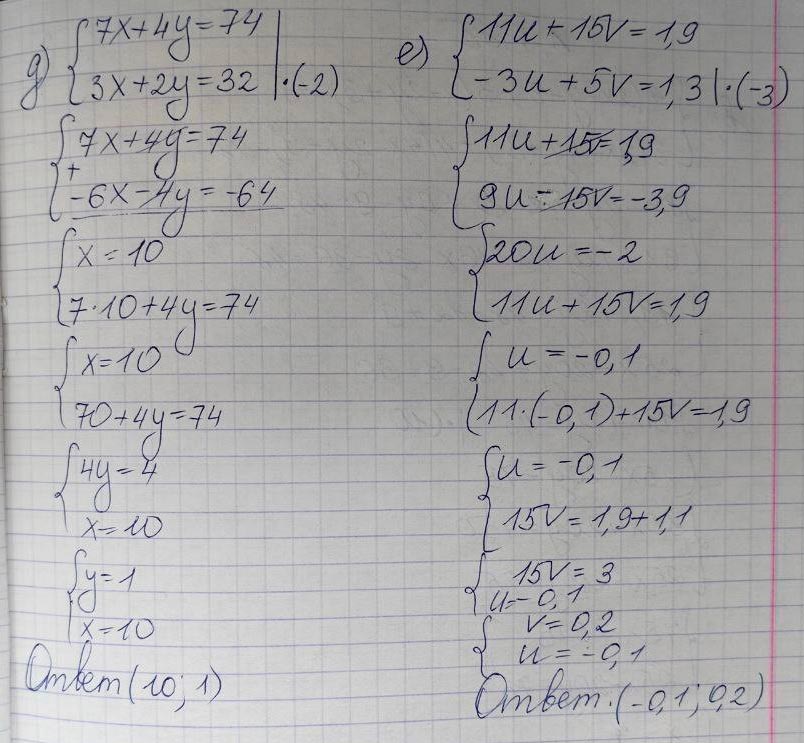 д) { 7x+4y=74
3x+2y=32 | ·(-2)
{ 7x+4y=74
+
-6x-4y=-64
{ x=10
7·10+4y=74
{ x=10
70+4y=74
{ 4y=4
x=10
{ y=1
x=10
Ответ (10; 1)
е) { 11u+15v=1,9
-3u+5v=1,3 | ·(-3)
{ 11u+15v=1,9
9u-15v=-3,9
{ 20u=-2
11u+15v=1,9
{ u=-0,1
11·(-0,1)+15v=1,9
{ u=-0,1
15v=1,9+1,1
{ 15v=3
u=-0,1
{ v=0,2
u=-0,1
Ответ. (-0,1; 0,2)